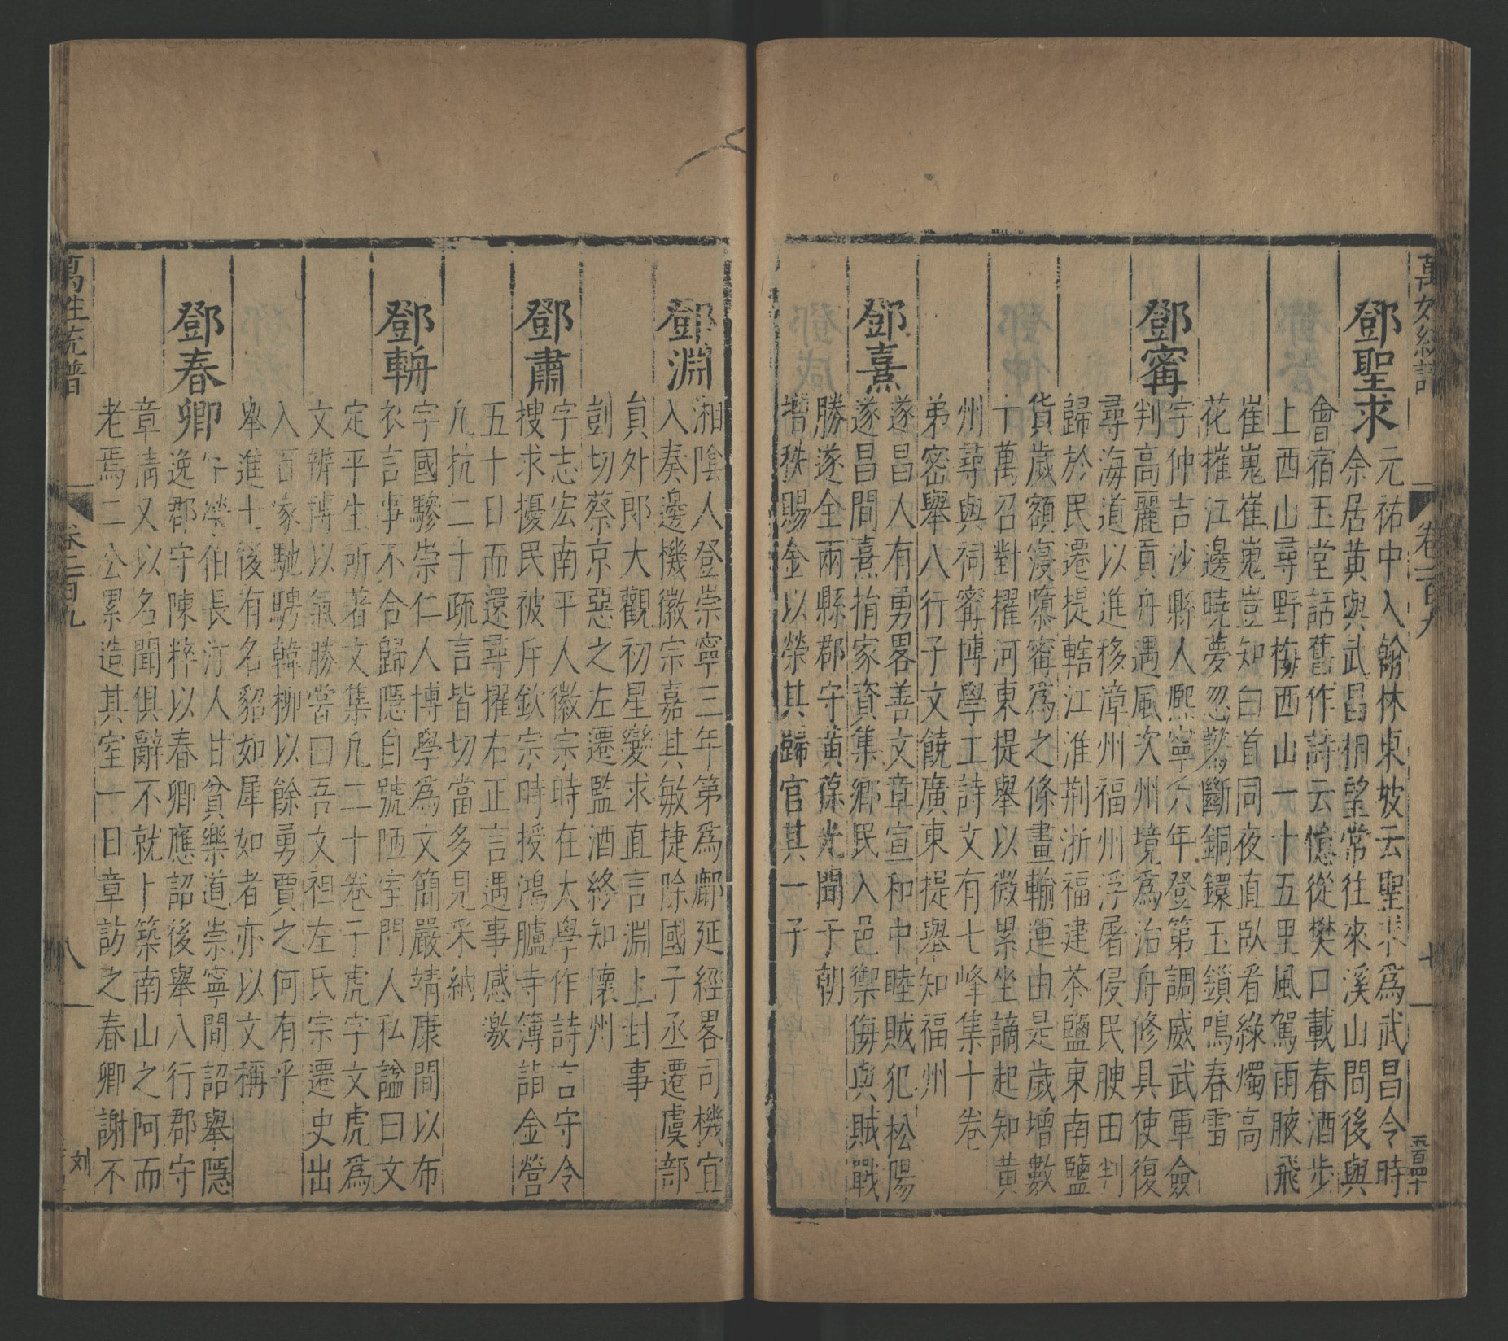 鄧聖求
元祐中入翰林東坡云聖求爲武昌令時
余居黃與武昌相望常往來溪山間後與
會宿玉堂話舊作詩云憶從樊口載春酒步
上西山尋野梅西山一十五里風駕兩腋飛
崔嵬崔嵬豈知白首同夜直臥看綠燭高
花摧江邊曉夢忽驚斷銅鐶玉鎖鳴春雪
鄧甯
字仲吉沙縣人熙寧六年登第調威武軍僉
判高麗貢舟遇風次州境爲治舟修具使復
尋海道以進移漳州福州浮屠侵民腴田判
歸於民遷提轄江淮荆浙福建茶鹽東南鹽
貨歲額寖隳甯爲之條畫輸運由是歲增數
十萬召對擢河東提舉以微累坐謫起知黃
州尋與祠甯博學工詩文有七峰集十卷
弟密舉八行子文饒廣東提舉知福州
鄧熹
遂昌人有勇畧善文章宣和中睦賊犯松陽
遂昌間熹捐家資集鄉民入邑禦侮與賊戰
勝遂全兩縣郡守黃葆光聞于朝
增秩賜金以榮其歸官其一子
鄧淵
湘陰人登崇寧三年第爲鄜延經畧司機宜
入奏邊機徽宗嘉其敏捷除國子丞遷虞部
員外郎大觀初星變求直言淵上封事
剴切蔡京惡之左遷監酒終知懷州
鄧肅
字志宏南平人徽宗時在太學作詩言守令
搜求擾民被斥欽宗時授鴻臚寺簿詣金營
五十日而還尋擢右正言遇事感激
凢抗二十疏言皆切當多見采納
鄧輈
字國驂崇仁人博學爲文簡嚴靖康間以布
衣言事不合歸隱自號陋室門人私謚曰文
定平生所著文集凢二十卷子虎字文虎爲
文辨博以氣勝嘗曰吾文祖左氏宗遷史出
入百家馳騁韓柳以餘勇賈之何有乎
舉進士後有名貂如犀如者亦以文稱
鄧春卿
字榮伯長汀人甘貧樂道崇寧間詔舉隱
逸郡守陳粹以春卿應詔後舉八行郡守
章清又以名聞俱辭不就卜築南山之阿而
老焉二公累造其室一日章訪之春卿謝不
萬姓統譜
卷一百九
七
五百四十
萬姓統譜
卷一百九
八
刘